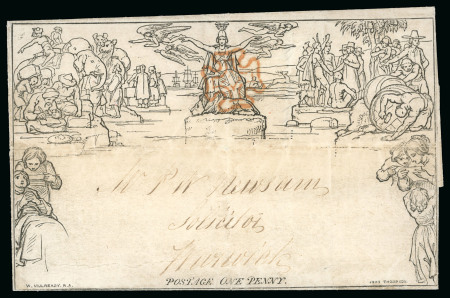 Mr P W Newsam
Solicitor
Warwick
POSTAGE ONE PENNY.
W. MULREADY, R.A.
JOHN THOMPSON